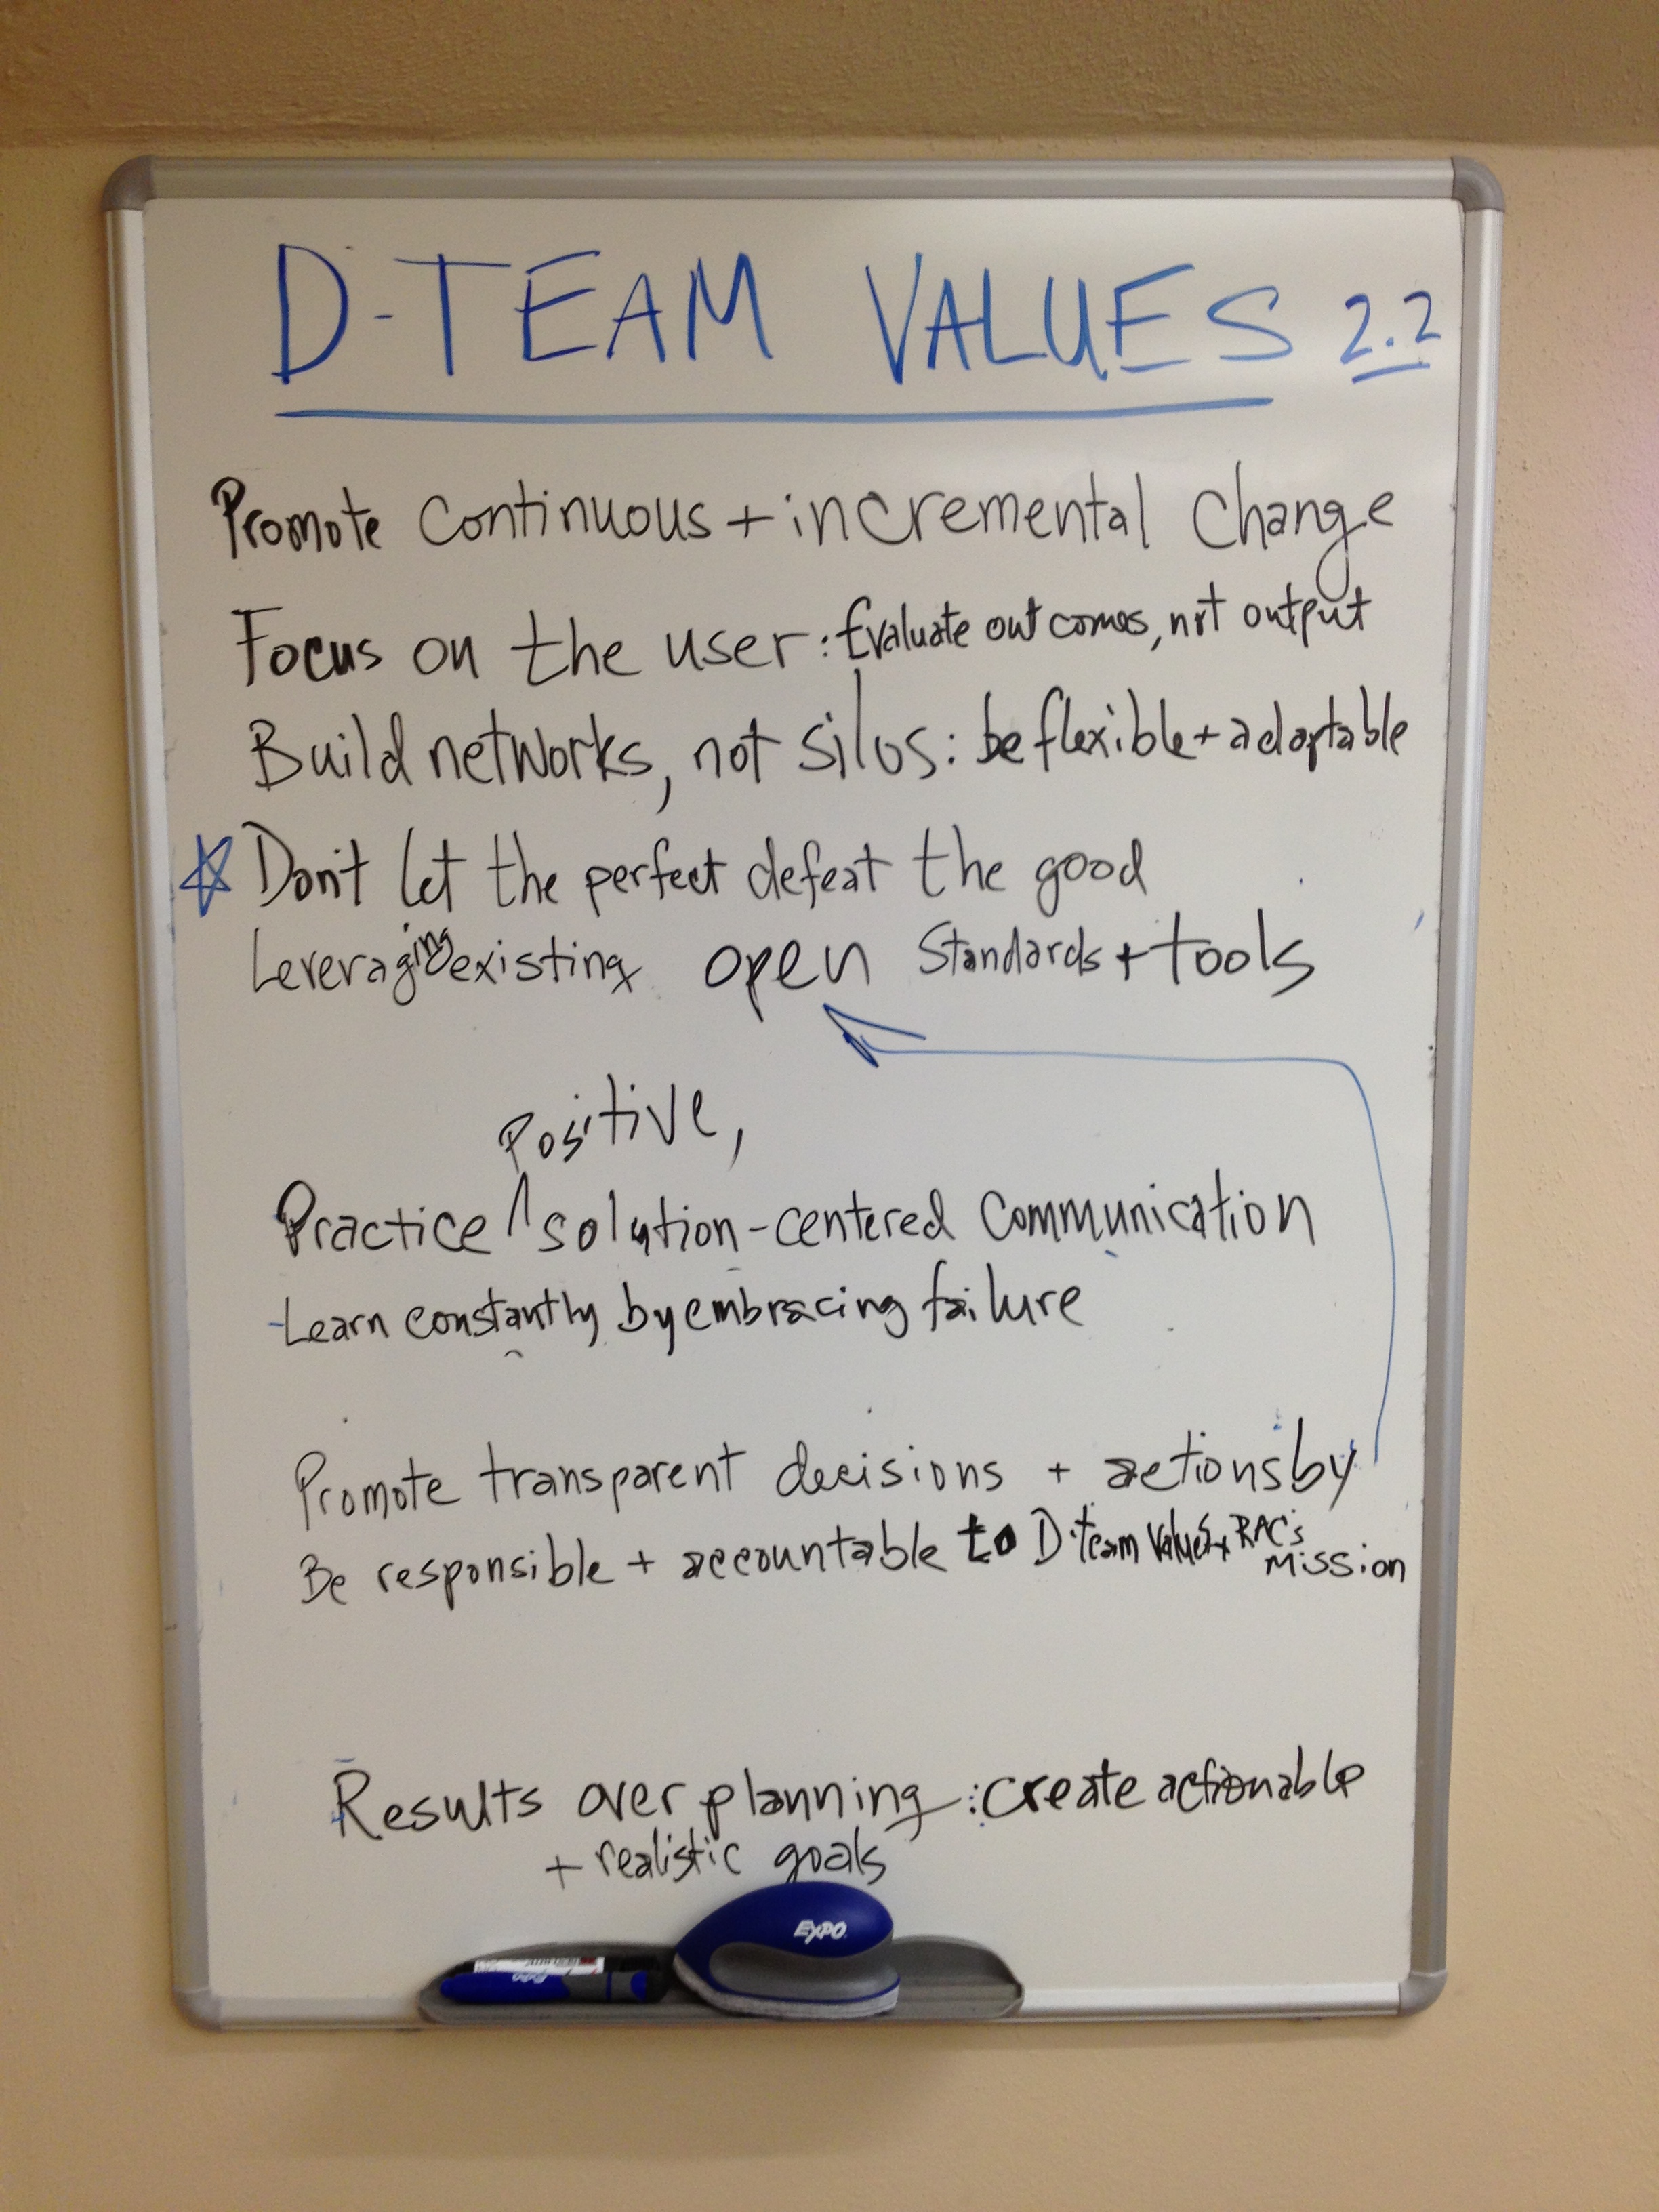 D-TEAM VALUES 2.2
Promote continuous + incremental change
Focus on the user: Evaluate outcomes, not output
Build networks, not silos: be flexible + adaptable
Don't let the perfect defeat the good
Leveraging existing open standards + tools
Positive,
Practice ^ solution-centered communication
-Learn constantly by embracing failure
Promote transparent decisions + actions by
Be responsible + accountable to D-team Values + RAC's
Mission
Results over planning: create actionable
+ realistic goals
EXPO